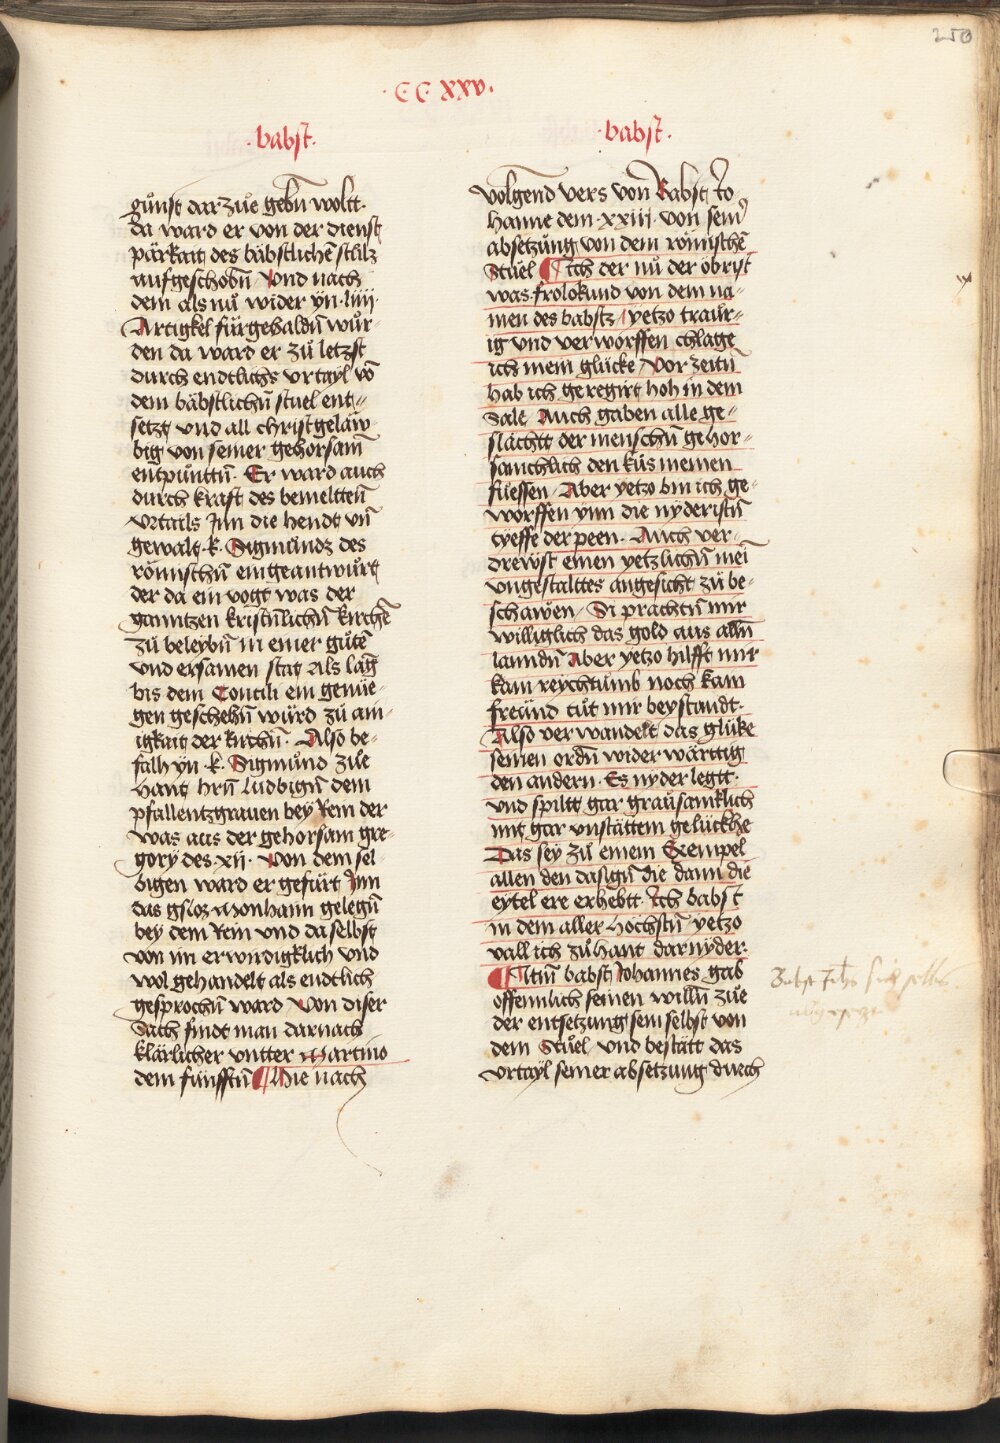 250
·CC XXV·
·babst·
gůnst dar zůe gebn̄ woltt·
da ward er von der dienst
pärkait des bäbstlichē stůlz
aufgeschobn̄ Vnd nach
dem als nů wider yn·liiij·
Artigkel fürgehaldn̄ wůr-
den da ward er zů letzst
durch endtlichs vrtayl vō
dem bäbstlichn̄ stuel ent-
setzt vnd all christgeläw
big von seiner gehorsam̄
entpůnttn̄· Er ward auch
durch kraft des bemeltten̄
vrtails Jnn die hendt vn̄
gewalt·k·Sigmůndz des
römischn̄ eingeantwůrt
der da ein vogt was der
ganntzen kristn̄lichn̄ kirchē
zů beleybn̄ in einer gůtē
vnd ersamen stat als lāg
bis dem Concili ein genüe-
gen geschehn̄ würd zů ain-
igkait der kirchn̄· Also be-
falh yn·k·Sigmůnd zůe
hant hrn̄ Ludbign̄ dem
pfallentzgrauen bey Rein der
was aus der gehorsam gre-
gory des xij· Von dem sel
bigen ward er gefürt Jnn
das gsloz Monhaim gelegn̄
bey dem Rein vnd da selbst
von im erwirdigklich vnd
wol gehandelt als endtlich
gesprochn̄ ward Von diser
Sach findt man darnach
klärlicher vntter Martino
dem fünfftn̄ ¶ Hie nach
·babst·
volgend vers von Babst Jo
hanne dem·xxiij·von sein̄
absetzůng von dem römischē
Stůel ¶ Ich der nů der öbrist
was frolokund von dem na-
men des babstz / yetzo traůr-
ig vnd verworffen chlage
ich mein glücke / Vor zeitn̄
hab ich geregirt hoh in dem
Sale / Auch gaben alle ge-
slächtt der menschn̄ gehor-
samchlich den küs meinen
füessen / Aber yetzo bin ich ge-
worffen ynn die nyderistn̄
tyeffe der peen· Auch ver-
drewst einen yetzlichn̄ mein̄
vngestalttes angesicht zů be-
schawen / Si prachtn̄ mir
williglich das gold aus alln̄
lanndn̄ Aber yetzo hilfft mir
kain reychtumb noch kain
freünd tůt mir beystandt·
Also verwandelt das glüke
seinen ordn̄ wider wärttig
den andern· Es nyder legtt·
vnd spiltt gar graůsamklich
mit gar vnstättem gelückhe
Das sey zů einem Exempel
allen den dasign̄ die dann die
eytel ere erhebtt Ich babst
in dem aller höchstn̄ / yetzo
vall ich zů hant dar nyder·
babst Johannes gab
offennlich seinen willn̄ zůe
der entsetzung sein selbst von
dem Stůel / vnd bestätt das
vrtayl seiner absetzung durch